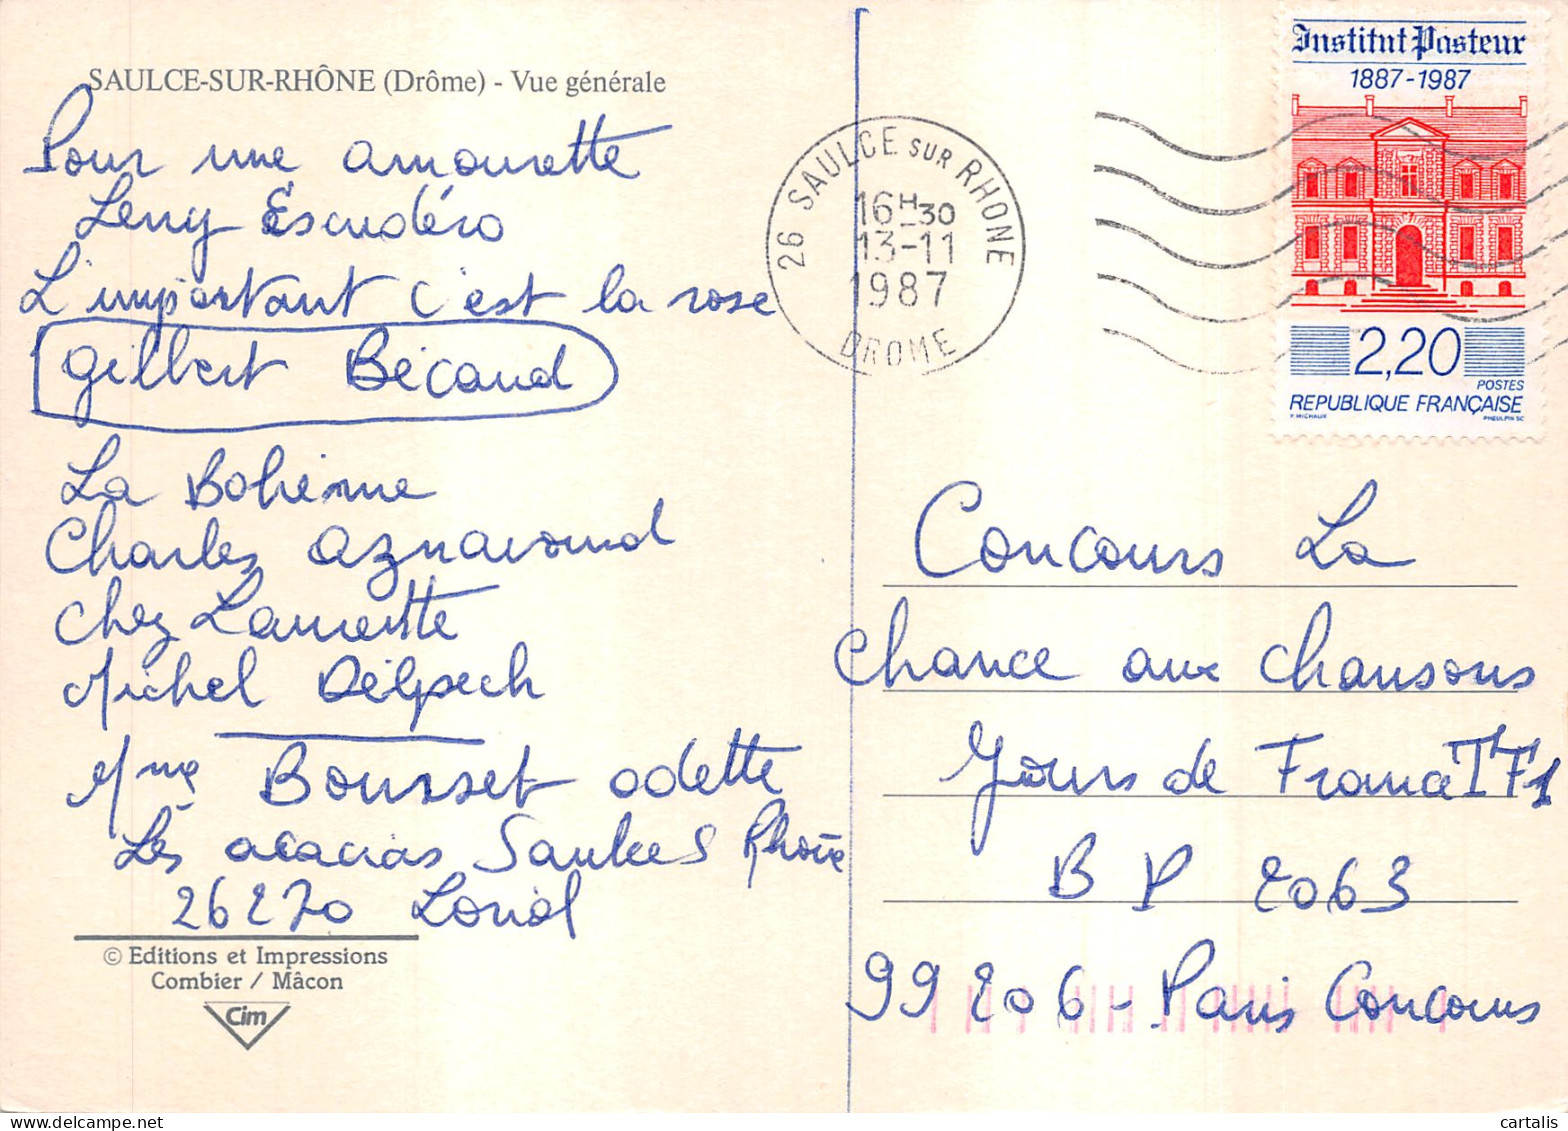 SAULCE-SUR-RHÔNE (Drôme) - Vue générale
Pour une amourette
Leny Escudéro
L'important c'est la rose
Gilbert Bécaud
La Bohème
Charles Aznavourd
Chez Laurette
Michel Délpech
Mme Bousset Odette
Les acacias Saulces Rhône
26270 Loriol
© Editions et Impressions
Combier / Mâcon
Cim
26 SAULCE SUR RHONE
16H30
13-11
1987
DROME
Institut Pasteur
1887-1987
2,20
POSTES
REPUBLIQUE FRANÇAISE
Y. MICHAUX PHEULPIN SC
Concours La
Chance aux chansons
Jours de France TF1
BP 2063
99206 - Paris Concours
cartalis